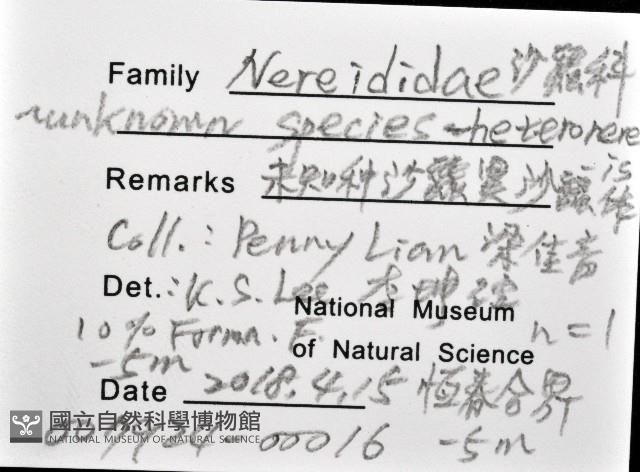 Family Nereididae 沙蠶科
unknown species-heteronereis
Remarks 未知種沙蠶異沙蠶体
Coll.: Penny Lian 梁佳音
Det.: K. S. Lee 李坤瑄
National Museum of Natural Science
10% Forma. F. n=1
-5m
Date 2018.4.15 恆春合界
-5m
00016
國立自然科學博物館
NATIONAL MUSEUM OF NATURAL SCIENCE